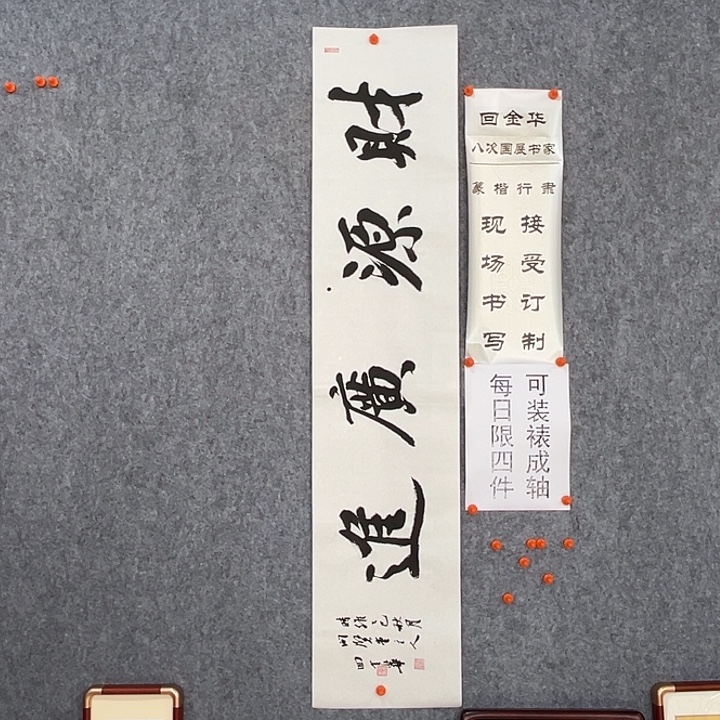 財源廣進
回金華
回金华
八次国展书家
篆楷行隶
接受订制
现场书写
可装裱成轴
每日限四件